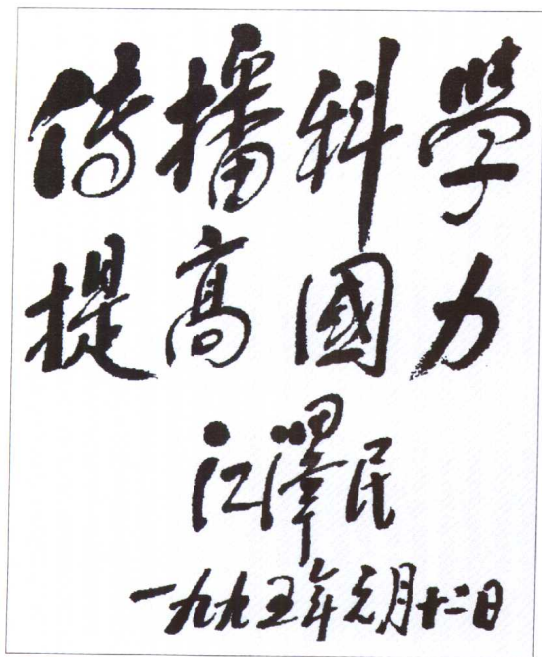 传播科學
提高國力
江澤民
一九九五年元月十二日